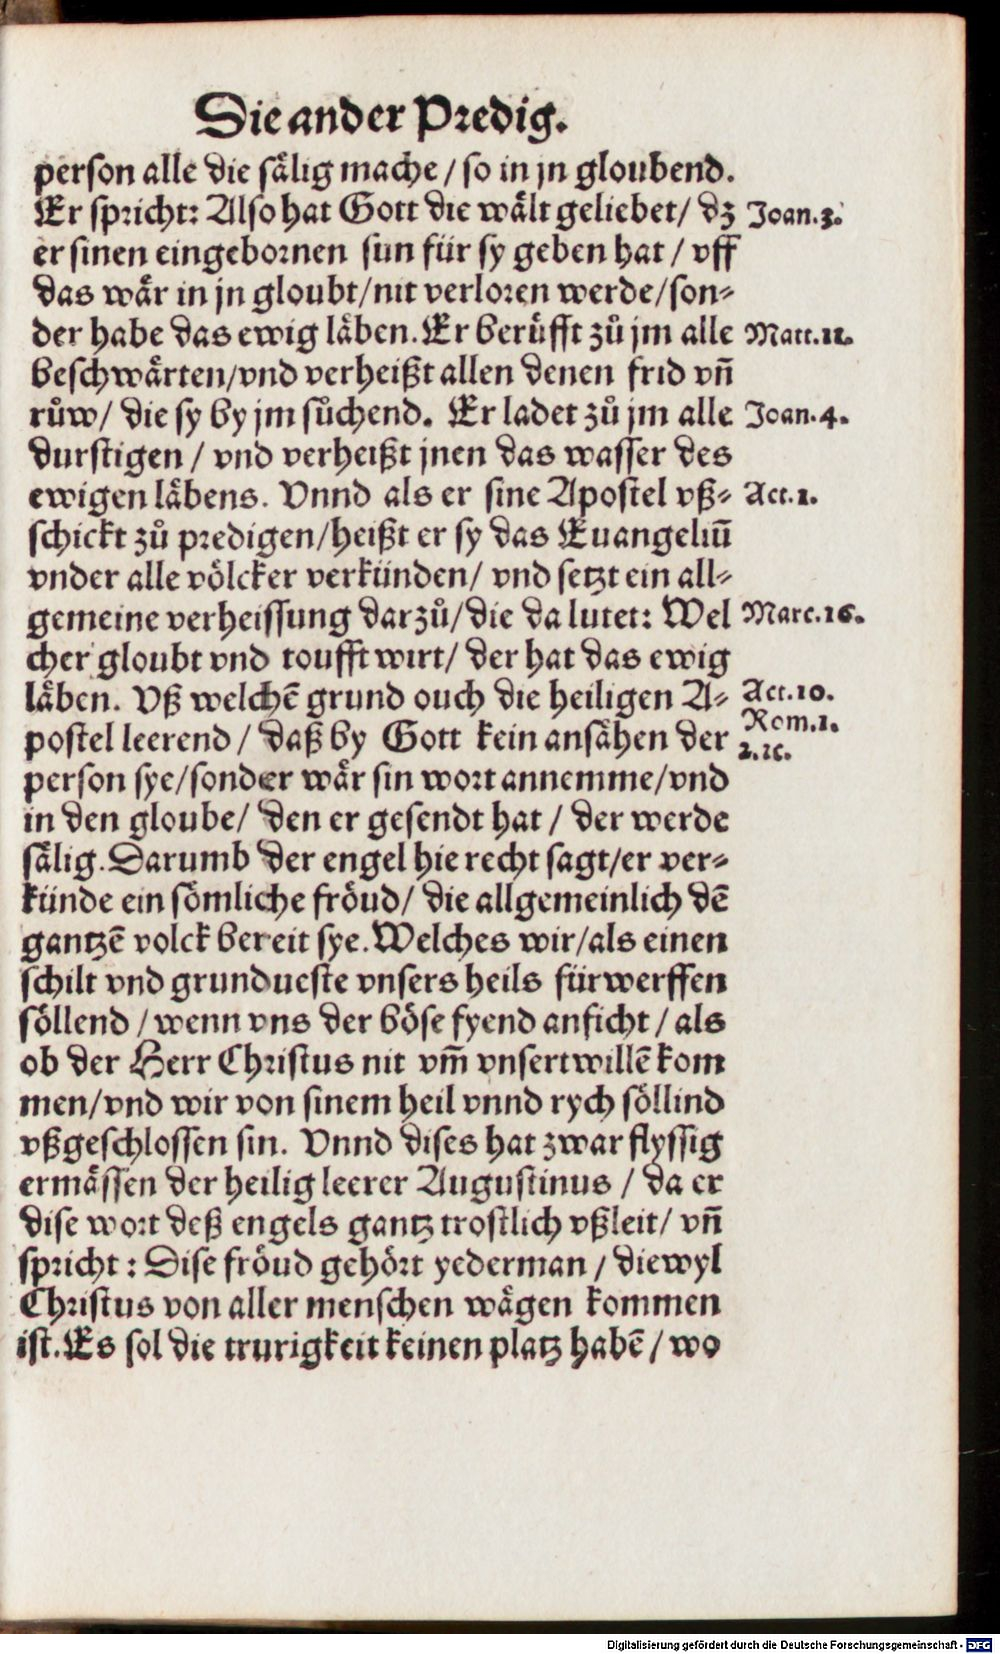 Die ander Predig.
person alle die sälig mache / so in jn gloubend.
Er spricht: Also hat Gott die wält geliebet / dz Joan.3.
er sinen eingebornen sun für sy geben hat / vff
das wär in jn gloubt / nit verloren werde / son-
der habe das ewig läben. Er berüfft zů jm alle Matt.11.
beschwärten / vnd verheißt allen denen frid vñ
růw / die sy by jm sůchend. Er ladet zů jm alle Joan.4.
durstigen / vnd verheißt jnen das wasser des
ewigen läbens. Vnnd als er sine Apostel vß- Act.1.
schickt zů predigen / heißt er sy das Euangeliũ
vnder alle völcker verkünden / vnd setzt ein all-
gemeine verheissung darzů / die da lutet: Wel Marc.16.
cher gloubt vnd toufft wirt / der hat das ewig
läben. Vß welchẽ grund ouch die heiligen A- Act.10.
postel leerend / daß by Gott kein ansähen der Rom.1.
person sye / sonder wär sin wort annemme / vnd 2.ꝛc.
in den gloube / den er gesendt hat / der werde
sälig. Darumb der engel hie recht sagt / er ver-
künde ein sömliche fröud / die allgemeinlich dẽ
gantzẽ volck bereit sye. Welches wir / als einen
schilt vnd grundueste vnsers heils fürwerffen
söllend / wenn vns der böse fyend anficht / als
ob der Herr Christus nit vm̃ vnsertwillẽ kom
men / vnd wir von sinem heil vnnd rych söllind
vßgeschlossen sin. Vnnd dises hat zwar flyssig
ermässen der heilig leerer Augustinus / da er
dise wort deß engels gantz trostlich vßleit / vñ
spricht: Dise fröud gehört yederman / diewyl
Christus von aller menschen wägen kommen
ist. Es sol die trurigkeit keinen platz habẽ / wo
Digitalisierung gefördert durch die Deutsche Forschungsgemeinschaft - DFG